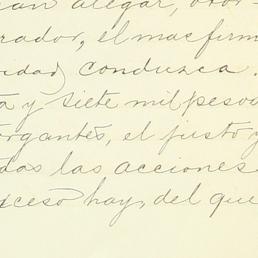 uan alegar, otor-
rador, el mas firm
ridad, conduzca.
a y siete mil pesos
organtes, el justo y
das las acciones
xceso hay, del que